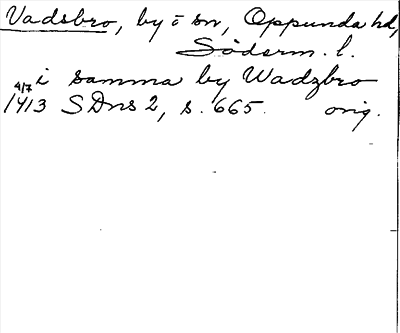 Vadsbro, by i sn, Oppunda hd,
Söderm. l.
i samma by Wadzbro
4/7 1413 SDns 2, s. 665. orig.